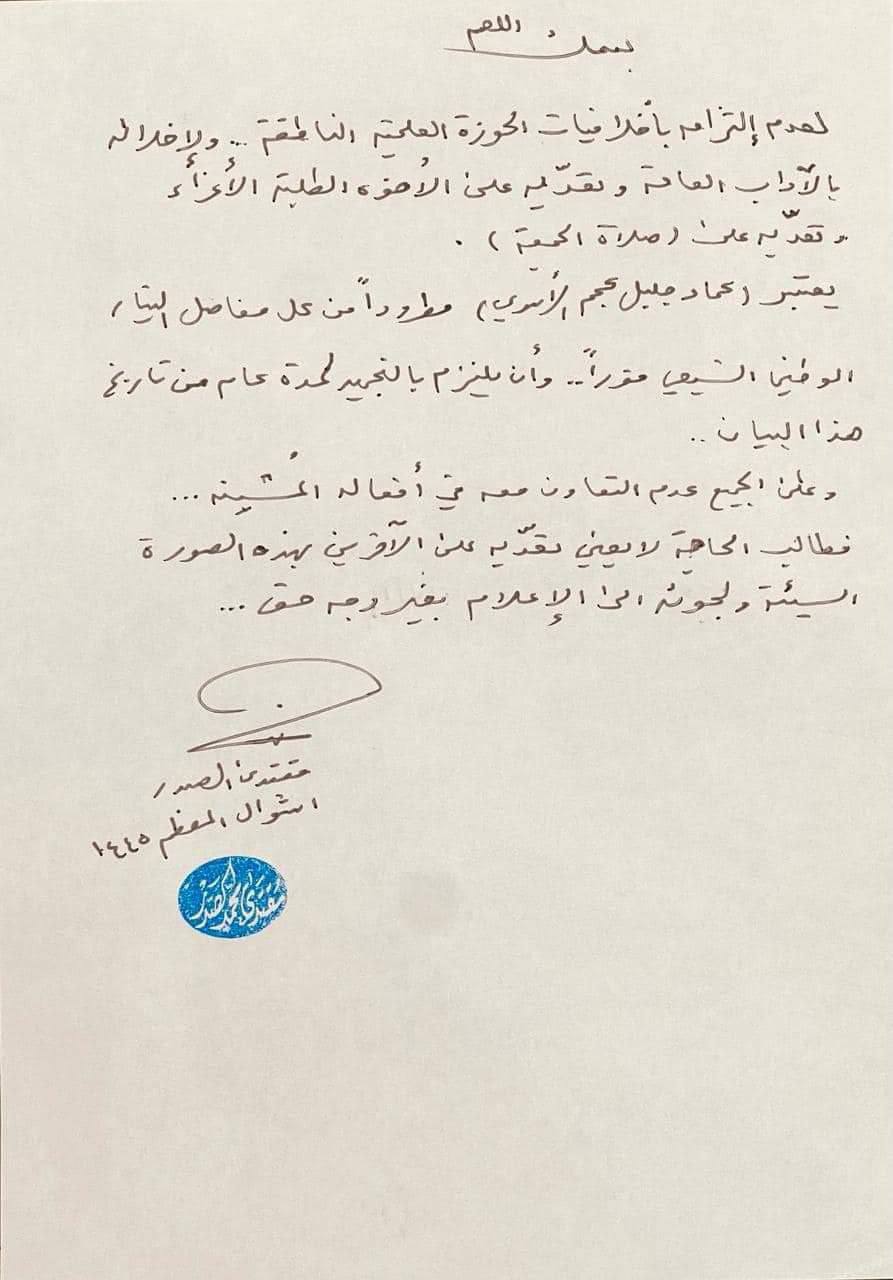 بسمك اللهم
لعدم إلتزامه بأخلاقيات الحوزة العلمية الناطقة ... ولإخلاله
بالآداب العامة وتعدّيه على الأخوه الطلبة الأعزاء
وتعدّيه على (صلاة الجمعة) .
يعتبر (عماد جليل عجم الأسدي) مطروداً من كل مفاصل التيار
الوطني الشيعي فوراً.. وأن يلتزم بالتجميد لمدة عام من تاريخ
هذا البيان ..
وعلى الجميع عدم التعاون معه في أفعاله المُشينه ...
فطالب الحاجة لا يعني تعدّيه على الآخرين بهذه الصورة
السيئة ولجوئه الى الإعلام بغير وجه حق ...
مقتدى الصدر
١ شوال المعظم ١٤٤٥
مقتدى محمد الصدر